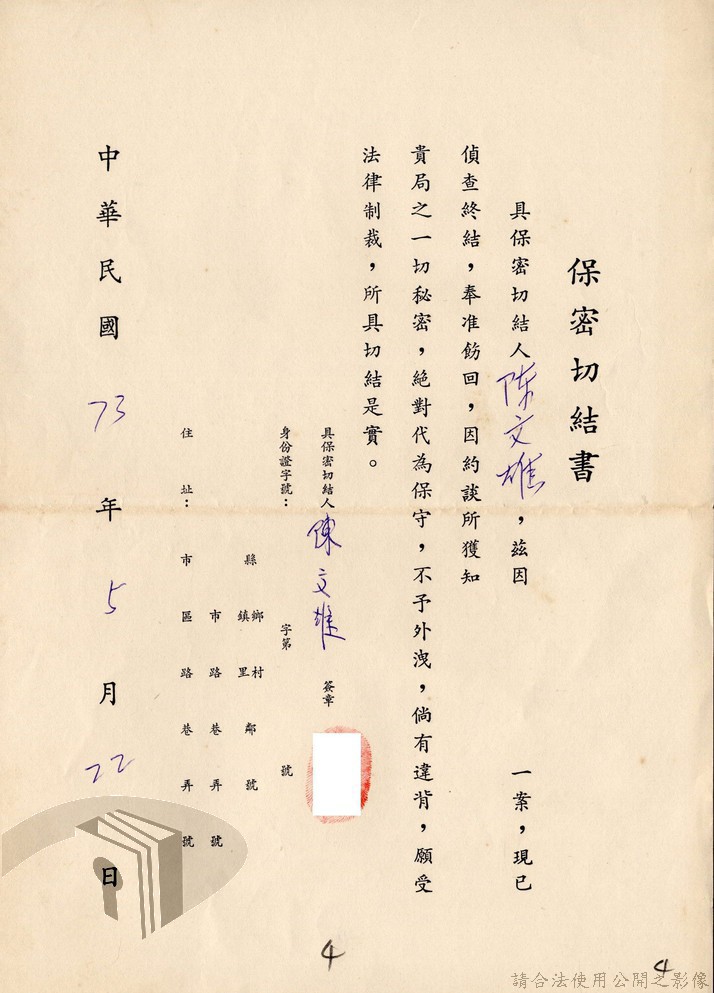 保密切結書
具保密切結人陈文雄，茲因　　　一案，現已
偵查終結，奉准飭回，因約談所獲知
貴局之一切秘密，絕對代為保守，不予外洩，倘有違背，願受
法律制裁，所具切結是實。
具保密切結人陳文雄　簽章
身份證字號：　　字第　　號
縣　鄉鎮　村里　鄰　號
市　路　巷　弄　號
住　址：　市　區　路　巷　弄　號
中華民國 73 年 5 月 22 日
4
4
請合法使用公開之影像